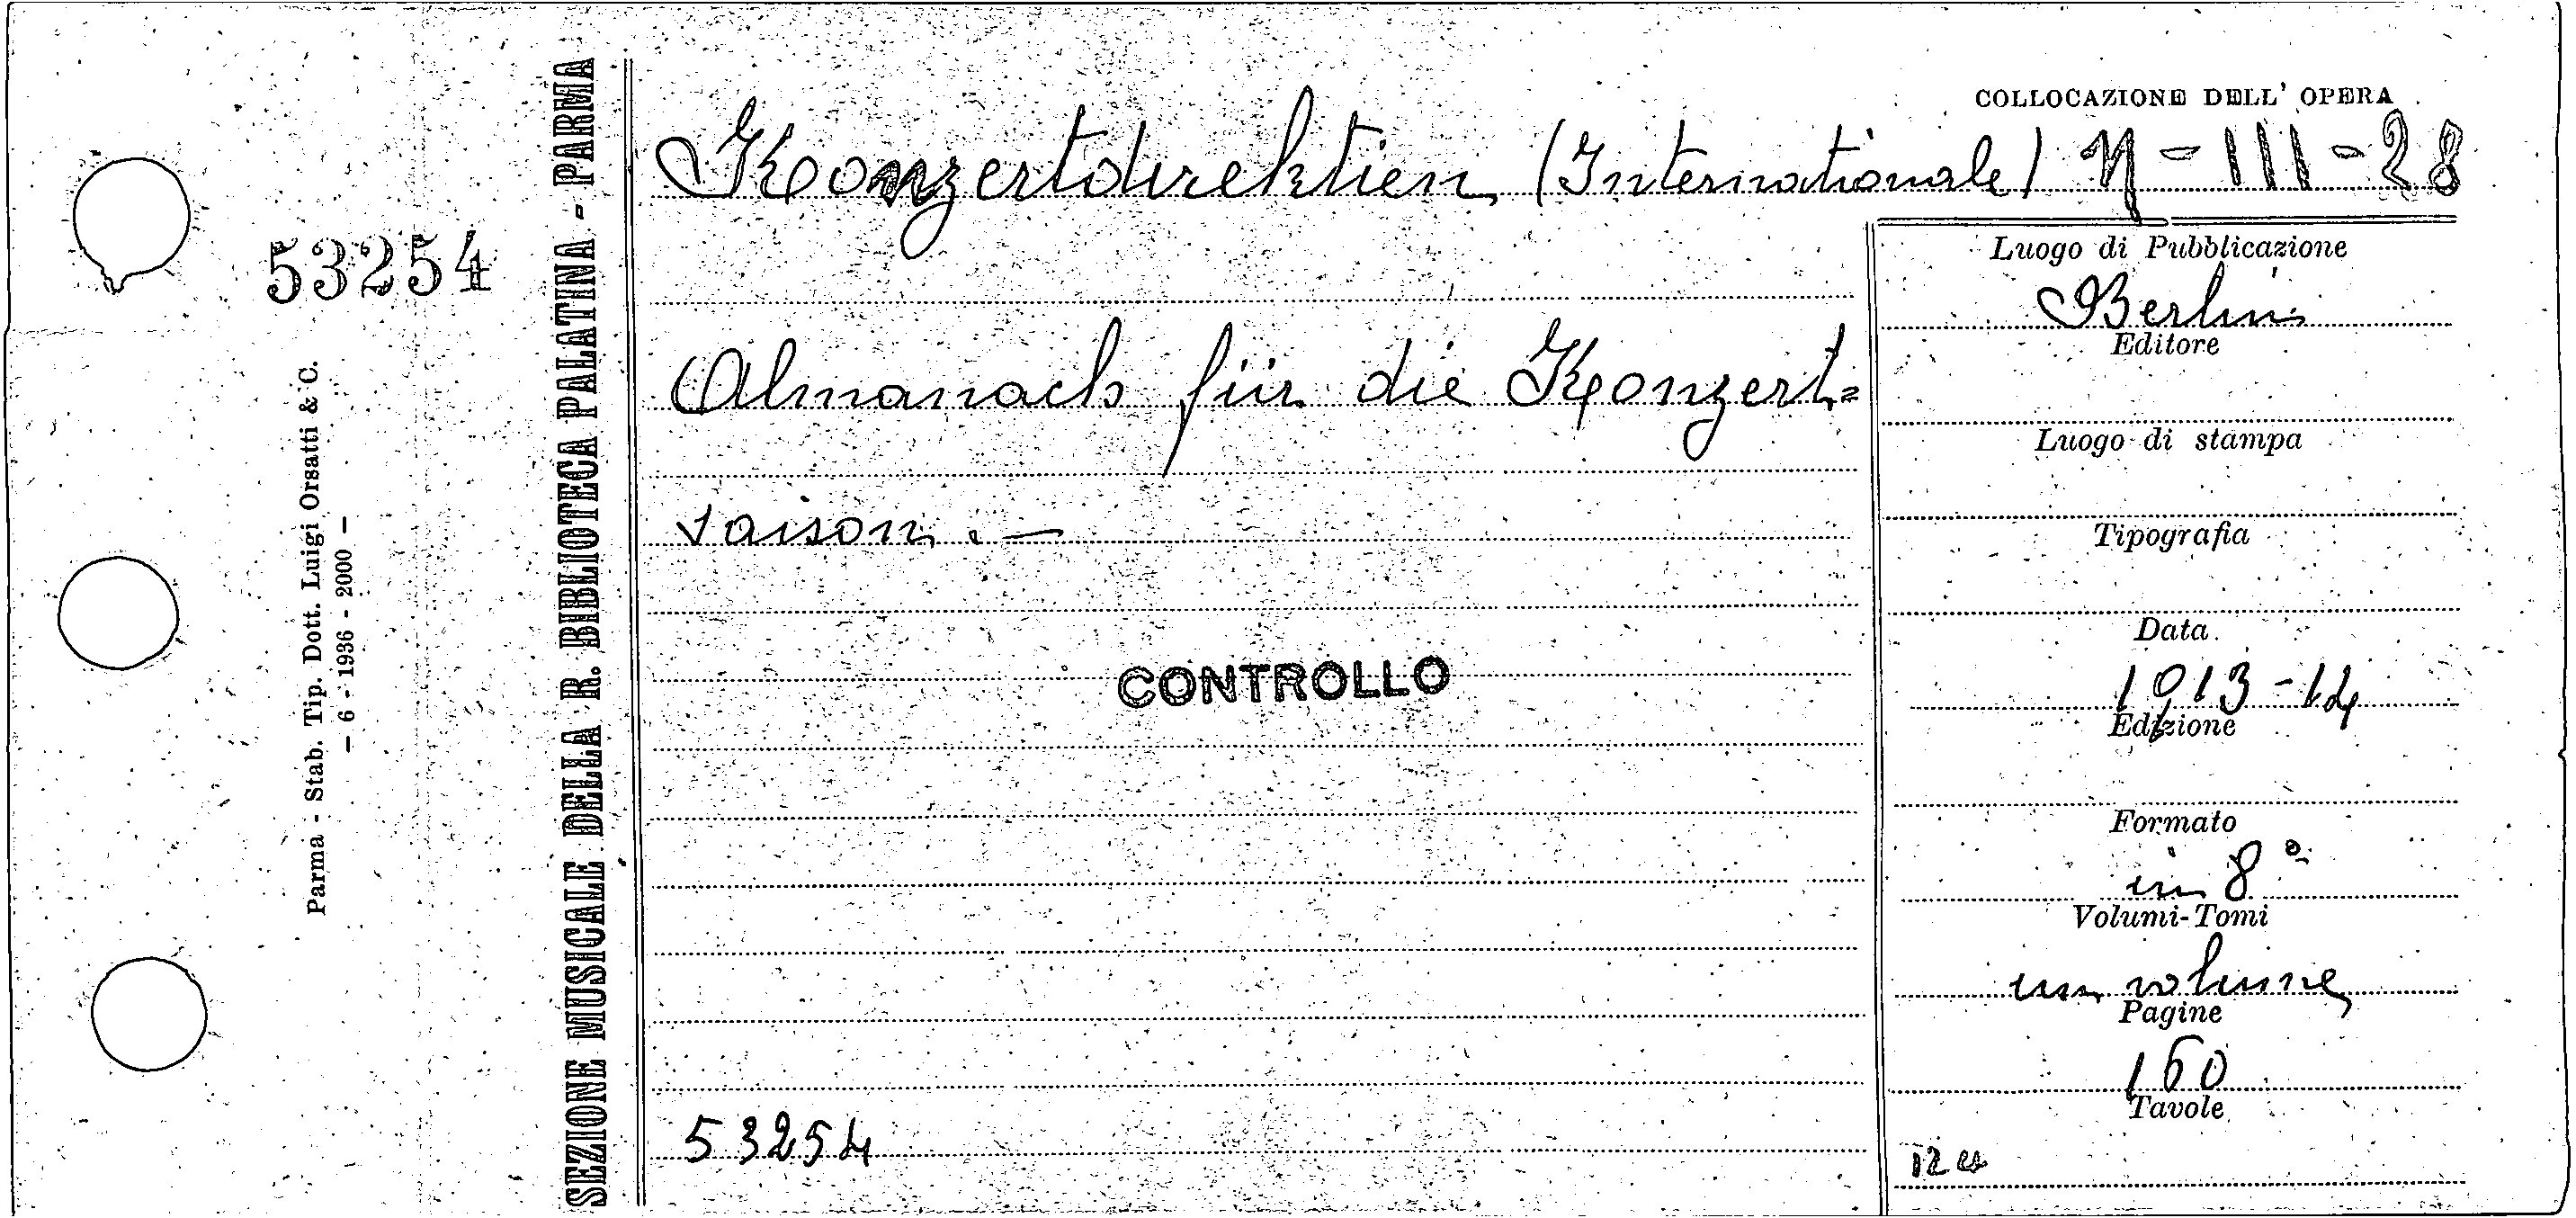 COLLOCAZIONE DELL' OPERA
Konzertdirektien (Internationale) N-III-28
53254
Parma - Stab. Tip. Dott. Luigi Orsatti & C.
– 6 - 1936 - 2000 –
SEZIONE MUSICALE DELLA R. BIBLIOTECA PALATINA - PARMA
Almanach für die Konzert=
saison. —
CONTROLLO
53254
Luogo di Pubblicazione
Berlin
Editore
Luogo di stampa
Tipografia
Data
1913-14
Edizione
Formato
in 8°
Volumi-Tomi
un volume
Pagine
160
Tavole